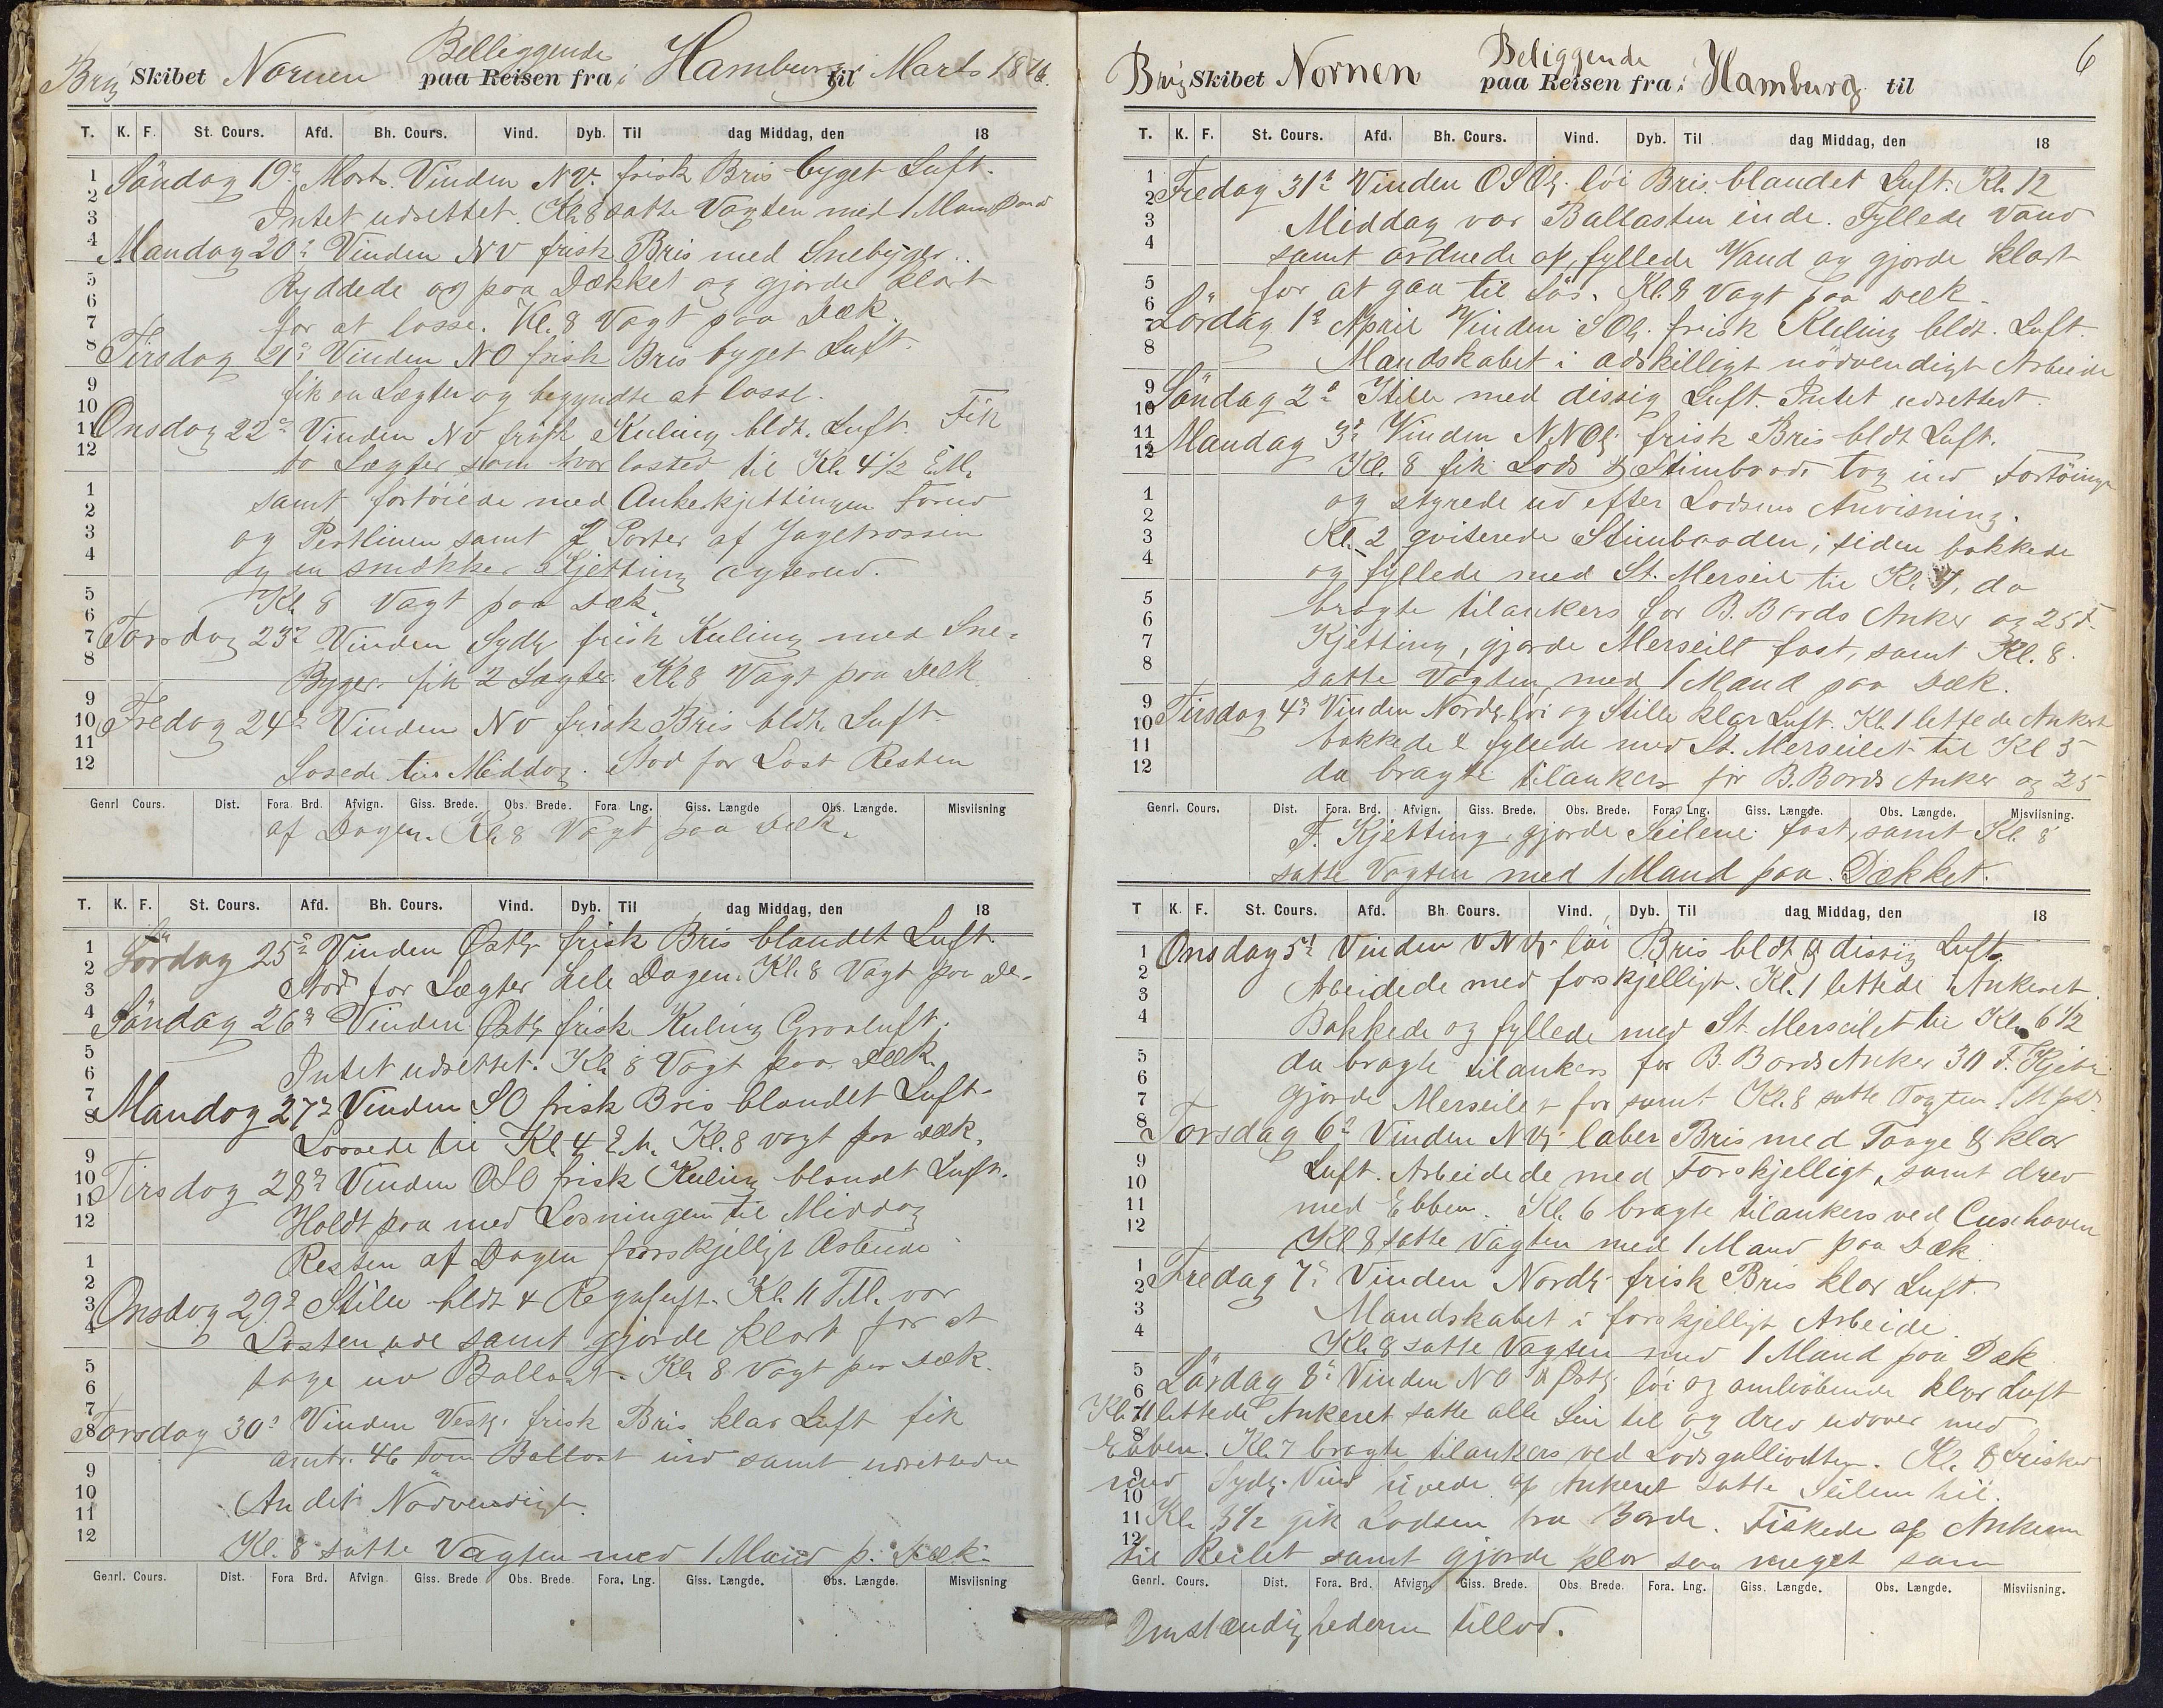 Belliggende
Brig Skibet Nornen paa Reisen fra i Hamburg til Marts 1876.
T. K. F. St. Cours. Afd. Bh. Cours. Vind. Dyb. Til dag Middag, den 18
Söndag 19de Marts. Vinden NV. frisk Bris byget Luft.
Intet udrettet. Kl. 8 satte Vagten med 1 Mand paa d
Mandag 20: Vinden NV frisk Bris med Snebyger.
Ryddede op paa Dækket og gjorde klart
for at losse. Kl. 8 Vagt paa Dæk.
Tirsdag 21: Vinden NO frisk Bris byget Luft.
fik en Lægter og begyndte at losse.
Onsdag 22: Vinden NV frisk Kuling bldt. Luft. Fik
to Lægter som hvor losted til Kl. 4 1/2 E.M.
samt fortöiede med Ankerkjettingen Forud
og Pertlinen samt 2 Parter af Jagetrossen
og en smækker Kjetting agterud.
Kl. 8 Vagt paa Dæk.
Torsdag 23: Vinden Sydl. frisk Kuling med Sne-
Byger. fik 2 Lægter. Kl. 8 Vagt paa Dæk
Fredag 24: Vinden NV frisk Bris bldt. Luft
Lossede til Middag. Stod for Last Resten
Genrl Cours. Dist. Fora. Brd. Afvign. Giss. Brede. Obs. Brede. Fora Lng. Giss. Længde Obs. Længde. Misviisning
af Dagen. Kl. 8 Vagt paa Dæk.
T. K. F. St. Cours. Afd. Bh. Cours. Vind. Dyb. Til dag Middag, den 18
Lördag 25: Vinden Östl. frisk Bris blandet Luft.
Stod for Lægter hele Dagen. Kl. 8 Vagt paa De-
Söndag 26: Vinden Östl. frisk Kuling Graaluft.
Intet udrettet. Kl. 8 Vagt paa Dæk.
Mandag 27: Vinden SO frisk Bris blandet Luft.
Lossede til Kl 4 E.M. Kl. 8 vagt paa Dæk.
Tirsdag 28: Vinden OSO frisk Kuling blandt Luft.
Holdt paa med Losningen til Middag
Resten af Dagen forskjelligt Arbeide
Onsdag 29: Stille bldt & Regnluft. Kl. 11 F.M. var
Lasten ude samt gjorde klart for at
tage ind Ballast. Kl. 8 Vagt paa Dæk.
Torsdag 30: Vinden Vestl. frisk Bris klar Luft fik
omtr. 46 Tons Ballast ind samt udrettede
Andet Nödvendigt.
Kl. 8 satte Vagten med 1 Mand p. Dæk.
Genrl. Cours. Dist. Fora Brd. Afvign. Giss. Brede Obs. Brede. Fora. Lng. Giss. Længde. Obs. Længde. Misviisning
6
Beliggende
Brig Skibet Nornen paa Reisen fra i Hamburg til
T. K. F. St. Cours. Afd. Bh. Cours. Vind. Dyb. Til dag Middag, den 18
Fredag 31: Vinden OSOl. löi Bris. blandet Luft. Kl. 12
Middag var Ballasten inde. Fyllede Vand
samt ordnede op, fyllede Vand og gjorde klart
for at gaa til Sös. Kl. 8 Vagt paa Dæk.
Lördag 1: April Vinden SOl. frisk Kuling bldt. Luft.
Mandskabet i adskilligt nödvendigt Arbeide
Söndag 2: Stille med dissig Luft. Intet udrettet.
Mandag 3: Vinden NNOl. frisk Bris bldt Luft.
Kl. 8 fik Lods & Stimbaad. tog ind Fortöinge
og styrede ud efter Lodsens Anvisning.
Kl. 2 qviterede Stimbaaden, siden bakkede
og fyllede med St. Merseil til Kl. 7, da
bragte tilankers for B. Bords Anker og 25 F.
Kjetting, gjorde Merseilt fast, samt Kl. 8.
satte Vagten med 1 Mand paa Dæk.
Tirsdag 4: Vinden Nordl. löi og Stille klar Luft. Kl. 1 lettede Ankeret
bakkede & fyllede med St. Merseilet til Kl 5
da bragte tilankers for B. Bords Anker og 25
Genrl. Cours. Dist. Fora. Brd. Afvign. Giss. Brede. Obs. Brede. Fora. Lng. Giss. Længde. Obs. Længde. Misviisning.
F. Kjetting, gjorde Seilene fast, samt Kl. 8
satte Vagten med 1 Mand paa Dækket.
T K. F. St. Cours. Afd. Bh. Cours. Vind. Dyb. Til dag Middag, den 18
Onsdag 5: Vinden VNVl. löi Bris bldt & dissig Luft.
Arbeidede med forskjelligt. Kl. 1 lettede Ankeret
Bakkede og fyllede med St. Merseilet til Kl. 6 1/2
da bragte tilankers for B. Bords Anker 30 F. Kjett.
gjorde Merseilet samt Kl. 8 satte Vagten 1 M.
Torsdag 6: Vinden NVl. laber Bris med Taage & klar
Luft. Arbeidede med Forskjelligt, samt drev
med Ebben. Kl. 6 bragte tilankers ved Cuxhaven
Kl 8 satte Vagten med 1 Mand paa Dæk.
Fredag 7: Vinden Nordl. frisk Bris klar Luft.
Mandskabet i forskjelligt Arbeide.
Kl. 8 satte Vagten med 1 Mand paa Dæk
Lördag 8: Vinden NO & Östl. löi og omlöbende klar Luft
Kl. 11 lettede Ankeret satte alle Seil til og drev udover med
Ebben. Kl. 7 bragte tilankers ved Lodsgalliodten. Kl. 8 frisket
med Sydl. Vind hivede op Ankeret satte Seilene til.
Kl. 8 1/2 gik Lodsen fra Borde. Fiskede op Ankerne
til Reilet samt gjorde klar saa meget som
Genrl. Cours. Dist. Fora. Brd. Afvign. Giss. Brede. Obs. Brede. Fora. Lng. Giss. Længde. Obs. Længde. Misviisning.
Omstændighederne tillod.